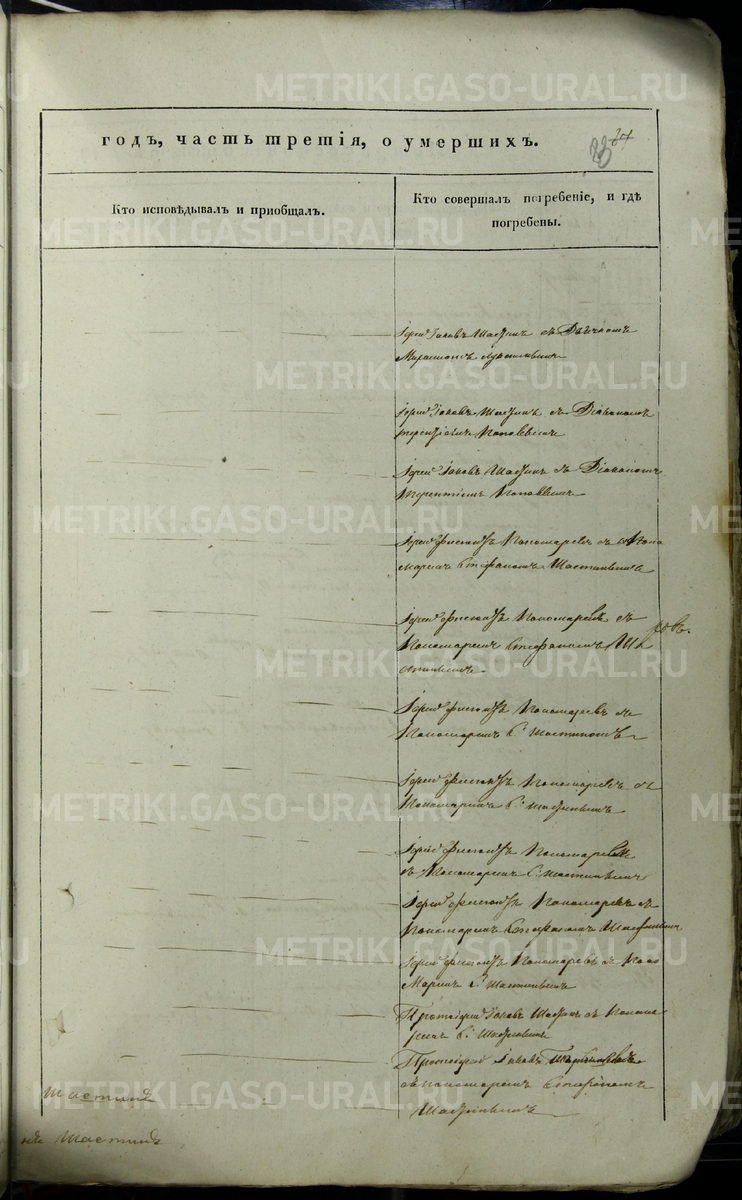 METRIKI.GASO-URAL.RU
годъ, часть третія, о умершихъ.
Кто исповѣдывалъ и приобщалъ.
Кто совершалъ погребеніе, и гдѣ
погребены.
Іерей Іаковъ Шастинъ съ
Іерей Іаковъ Шастинъ съ Діакономъ
Терентіемъ Поповымъ
Іерей Іаковъ Шастинъ съ Діакономъ
Терентіемъ Поповымъ
Іерей Пономаревъ съ Поно
маремъ Стефаномъ Шастинымъ
Іерей Пономаревъ съ
Пономаремъ Стефаномъ Ша
стинымъ
Іерей Пономаревъ съ
Пономаремъ С. Шастинымъ
Іерей Пономаревъ съ
Пономаремъ С. Шастинымъ
Іерей Пономаревъ
съ Пономаремъ С. Шастинымъ
Іерей Пономаревъ съ
Пономаремъ Стефаномъ Шастинымъ
Іерей Пономаревъ съ Поно
маремъ С. Шастинымъ
Протоіерей Іаковъ Шастинъ съ Понома
ремъ С. Шастинымъ
Протоіерей Іаковъ
съ Пономаремъ Стефаномъ
Шастинымъ
Шастинъ
Шастинъ